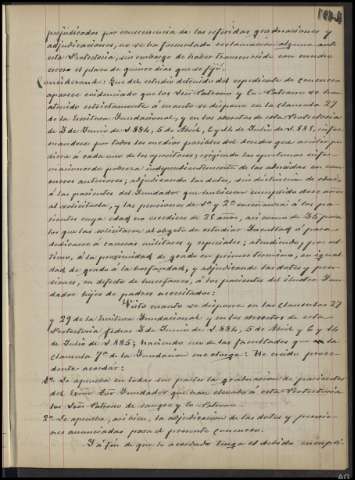 perjudicados por consecuencia de las referidas graduaciones y
adjudicaciones, no se ha formulado reclamacion alguna ante
este Protectoria, sin embargo de haber transcurrido con mucho
exceso el plazo de quince dias que se fijó.
Considerando: Que del estudio detenido del expediente de concurso
aparece evidenciado que los Señ Patronos y la Patrona se han
atenido estrictamente á cuanto se dispone en la clausula 27
de la Escritura fundacional, y en los decretos de esta Protectoria
de 3 de Junio de 1884, 5 de Abril, 6 y 14 de Julio de 1885, infor
mandose por todos los medios posibles del derecho que asistir pu
diera á cada uno de los opositores; exigiendo las oportunas infor
maciones de pobreza independientemente de las aducidas en con
cursos anteriores; adjudicando las dotes, sin distincion de edad,
á las parientes del fundador que hubiesen cumplido doce años
al solicitarla, y las pensiones de 1ª y 2ª enseñanza á los pa
rientes cuya edad no excediese de 25 años, asi como de 34 para
los que las solicitaren al objeto de estudiar Facultad ó para
dedicarse á carreras militares y especiales; atendiendo, por ul
timo, á la proximidad de grado en primer termino, en igual
dad de grado á la horfandad, y adjudicando las dotes y pen
siones, en defecto de huerfanos, á los parientes del ilustre Fun
dador hijos de padres necesitados:
Visto cuanto se dispone en las clausulas 27
y 29 de la Escritura fundacional y en los decretos de esta
Protectoria fechas 3 de Junio de 1884, 5 de Abril y 6 y 14
de Julio de 1885; haciendo uso de las facultades que la
clausula 7ª de la Fundacion me otorga: He creido proce
dente acordar:
1º Se aprueba en todas sus partes la graduacion de parientes
del Excmo Señ Fundador que han elevado á esta Protectoria
los Señ Patronos de sangre y la Patrona.
2º Se aprueba, asi bien, la adjudicacion de las dotes y pensio
nes anunciadas para el presente concurso.
Y á fin de que lo acordado tenga el debido cumpli-